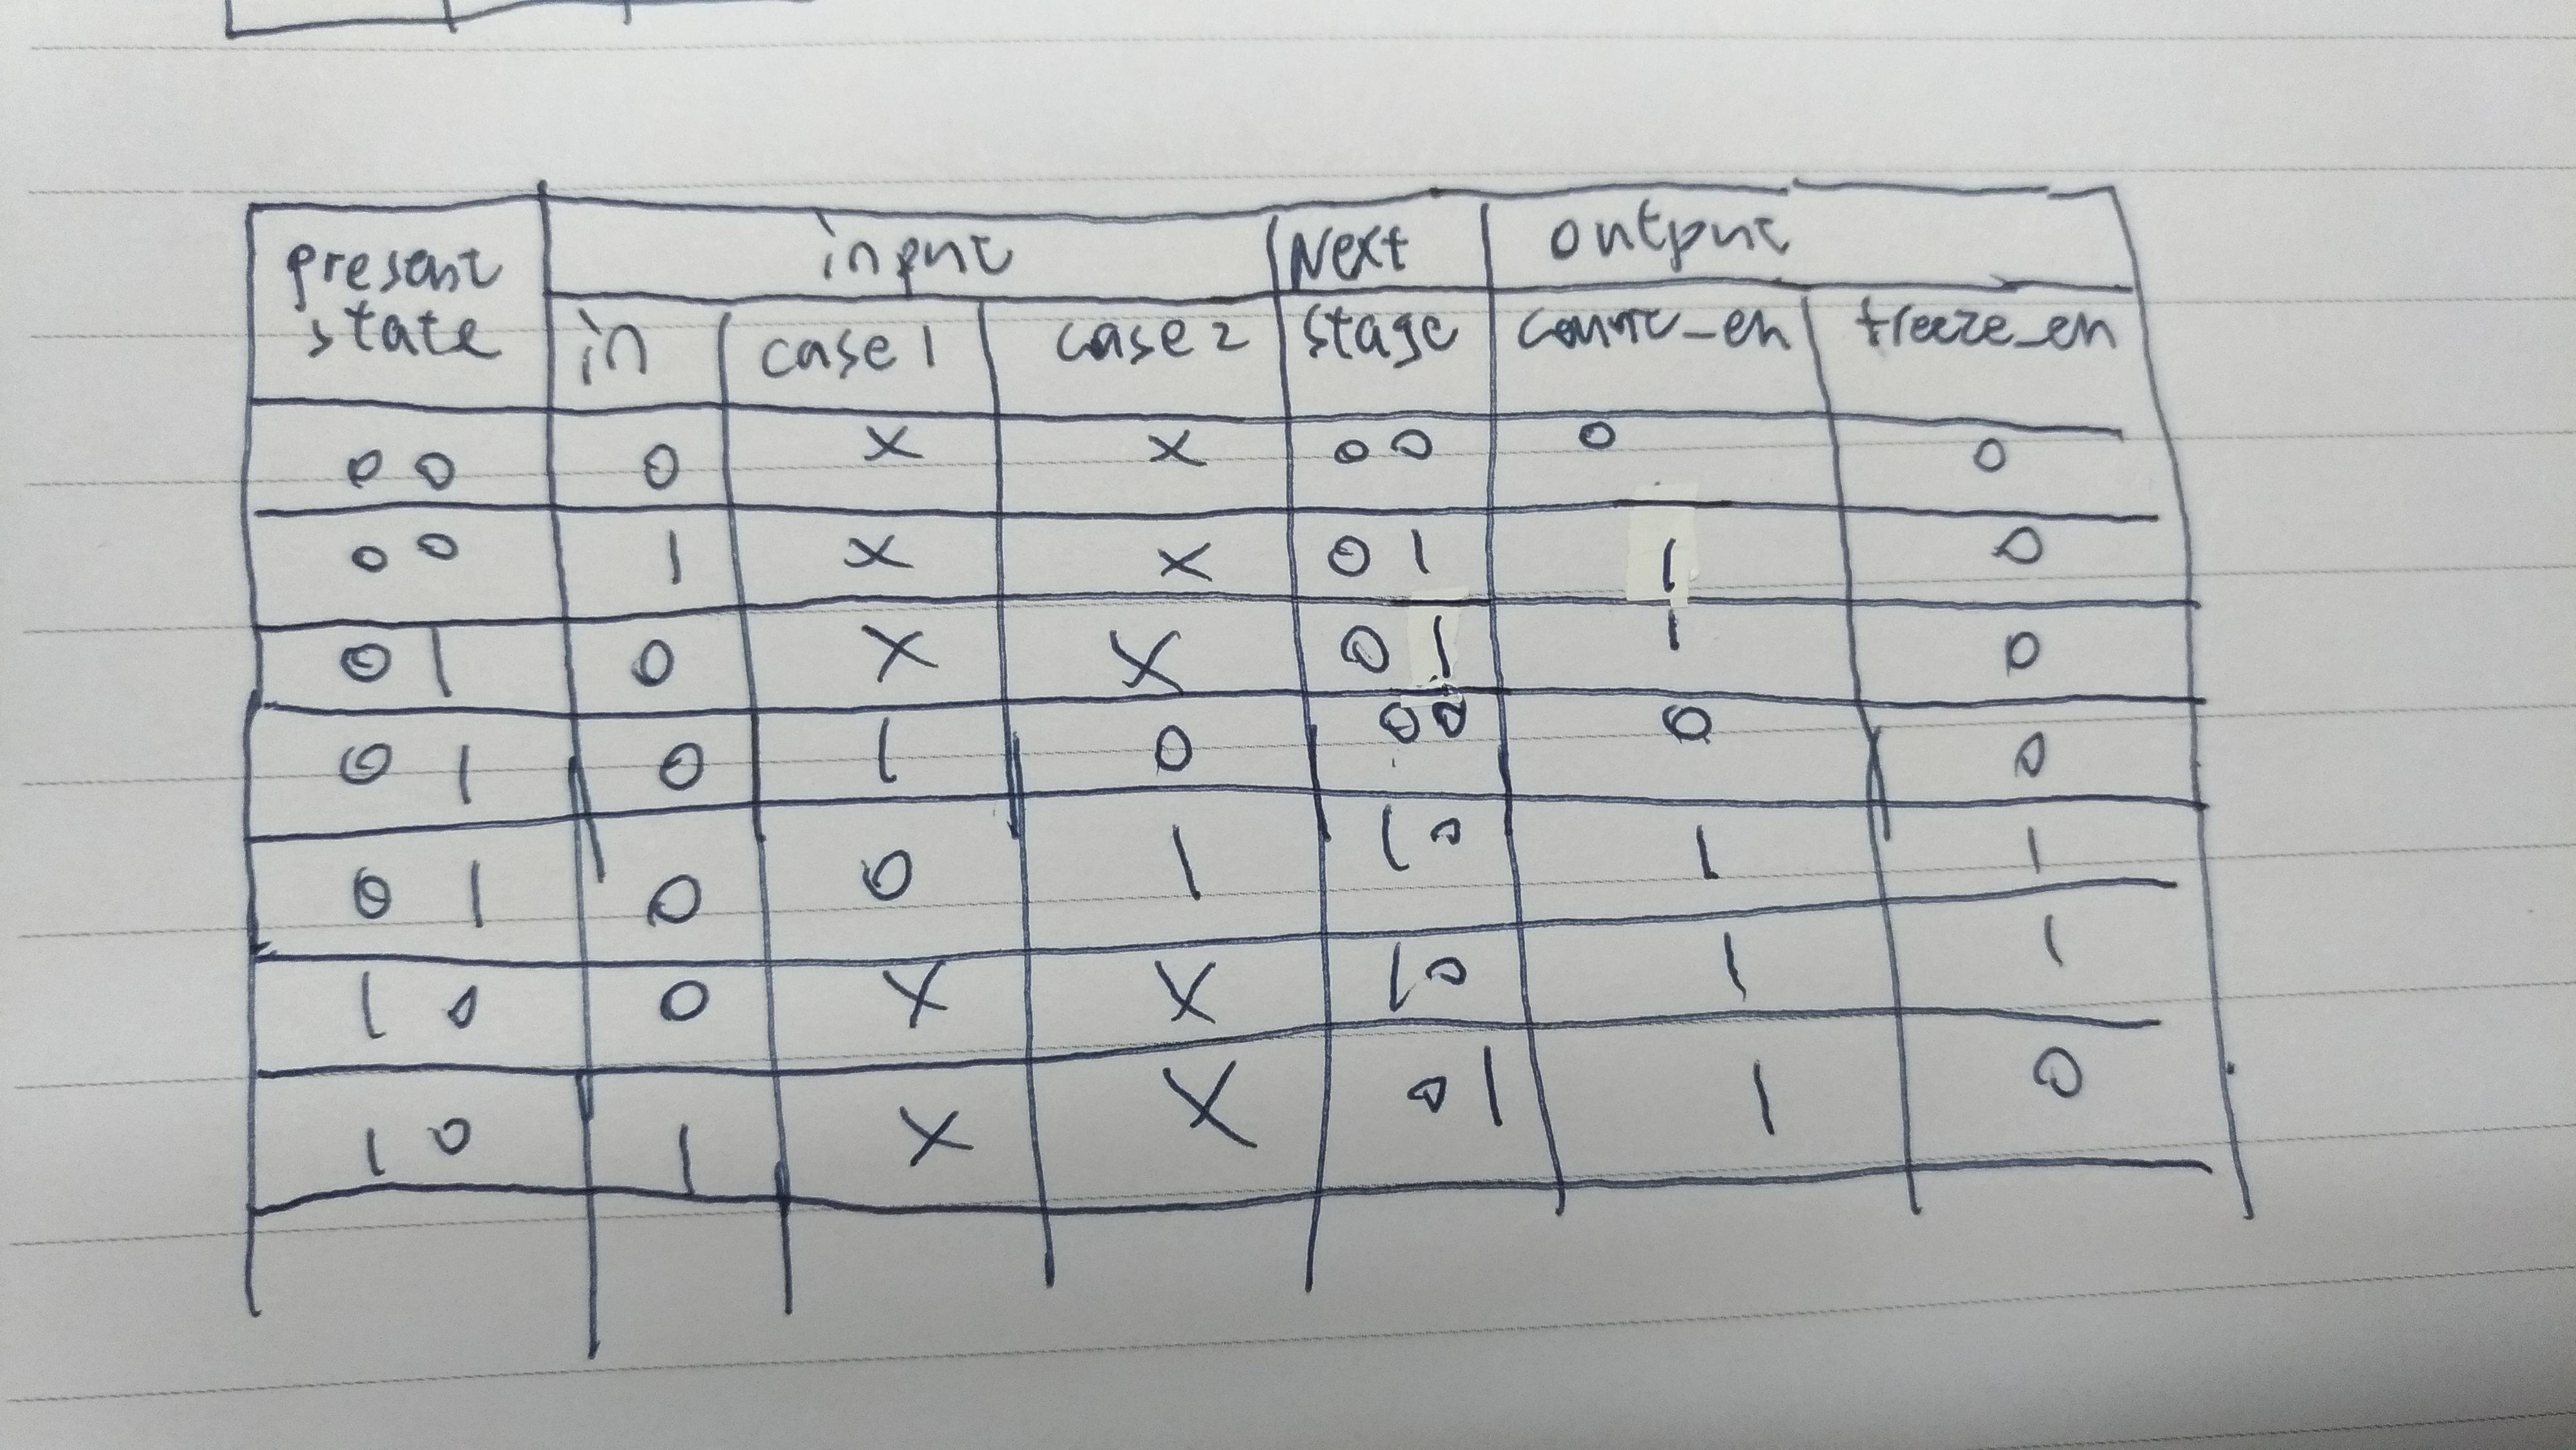 present state input Next stage output
in case 1 case 2 count_en freeze_en
00 0 x x 00 0 0
00 1 x x 01 1 0
01 0 x x 01 1 0
01 0 1 0 00 0 0
01 0 0 1 10 1 1
10 0 x x 10 1 1
10 1 x x 01 1 0